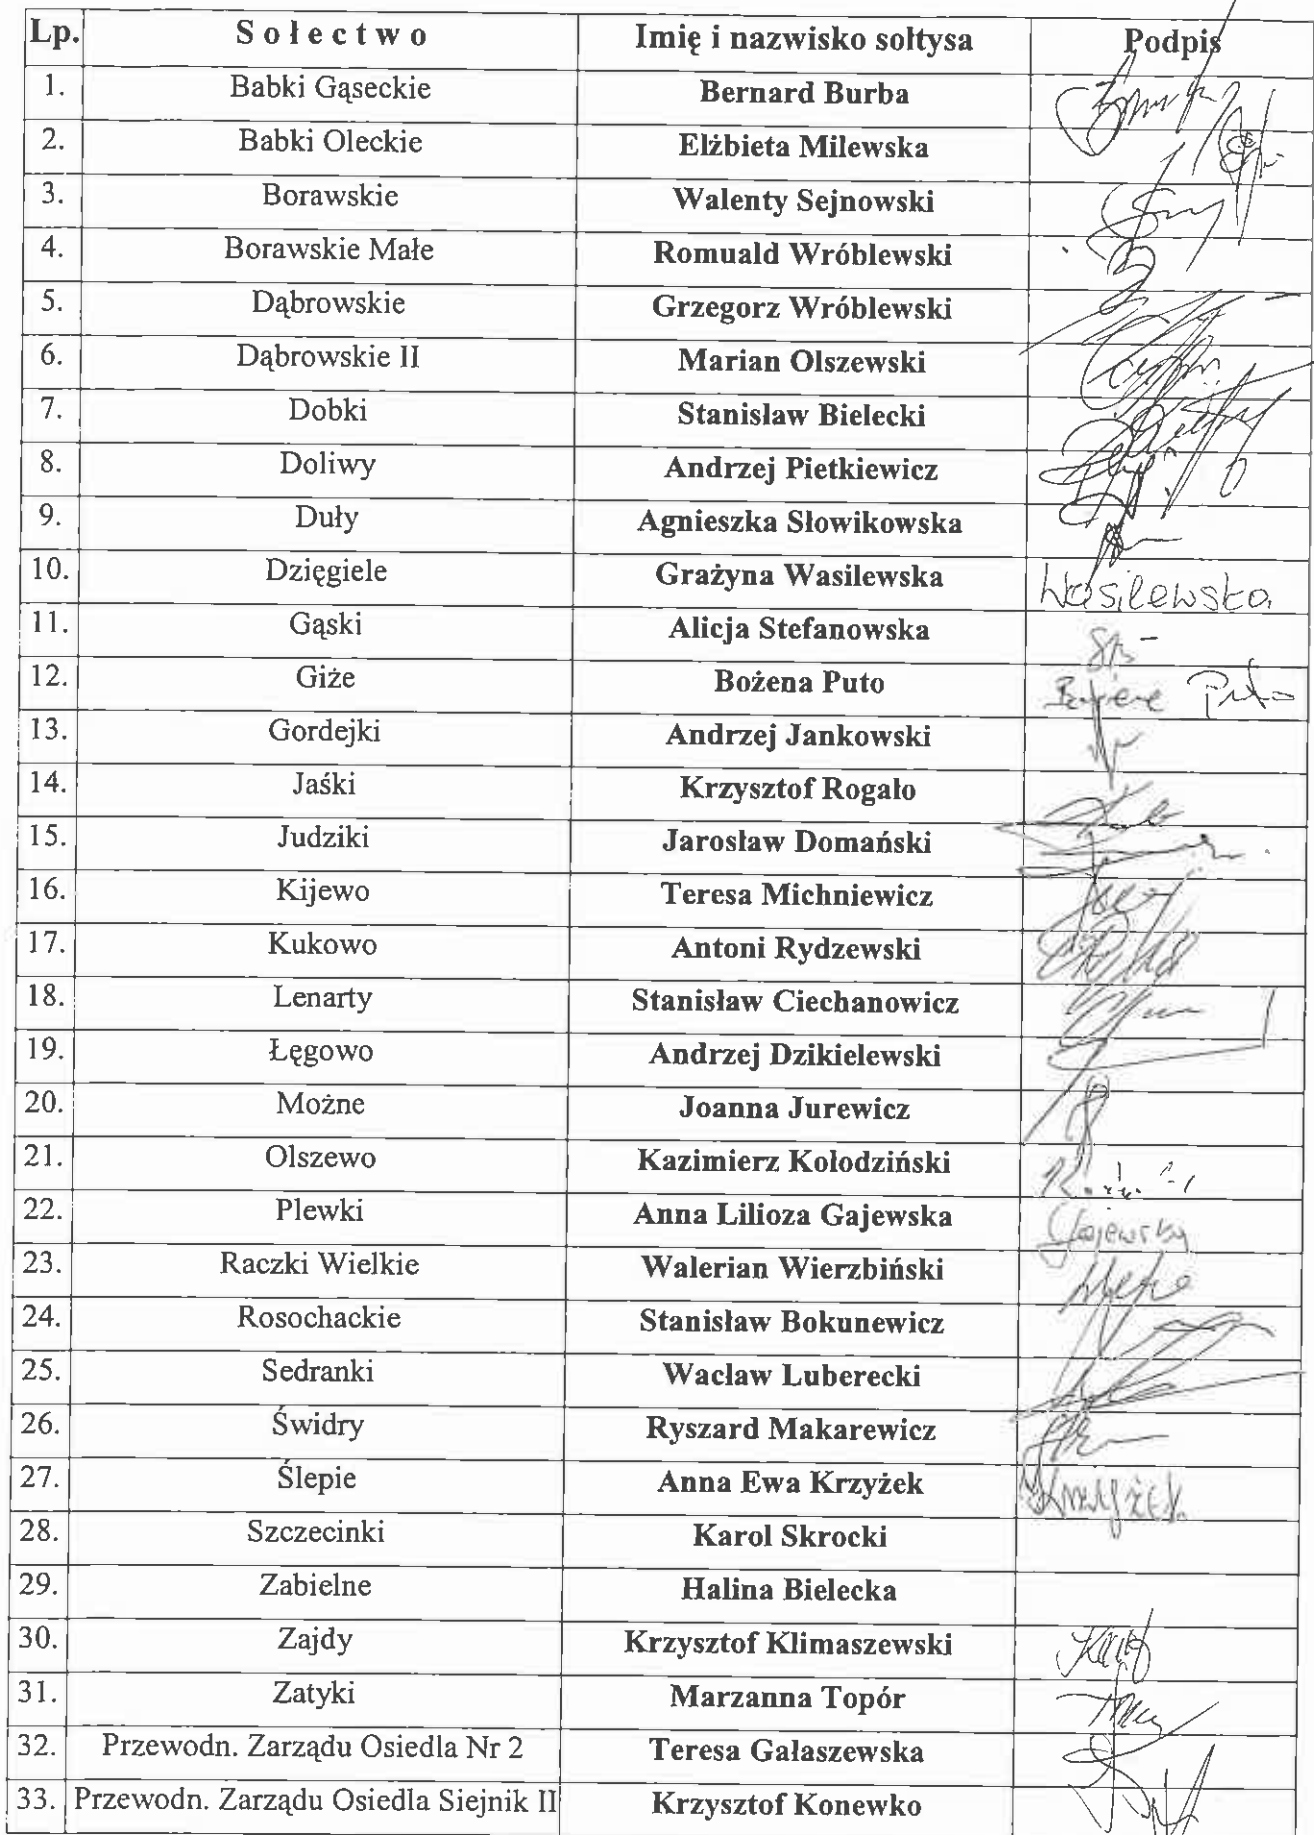 Lp. Sołectwo Imię i nazwisko sołtysa Podpis
1. Babki Gąseckie Bernard Burba
2. Babki Oleckie Elżbieta Milewska
3. Borawskie Walenty Sejnowski
4. Borawskie Małe Romuald Wróblewski
5. Dąbrowskie Grzegorz Wróblewski
6. Dąbrowskie II Marian Olszewski
7. Dobki Stanisław Bielecki
8. Doliwy Andrzej Pietkiewicz
9. Duły Agnieszka Słowikowska
10. Dzięgiele Grażyna Wasilewska Wasilewska
11. Gąski Alicja Stefanowska
12. Giże Bożena Puto Bożena Puto
13. Gordejki Andrzej Jankowski
14. Jaśki Krzysztof Rogało
15. Judziki Jarosław Domański
16. Kijewo Teresa Michniewicz
17. Kukowo Antoni Rydzewski
18. Lenarty Stanisław Ciechanowicz
19. Łęgowo Andrzej Dzikielewski
20. Możne Joanna Jurewicz
21. Olszewo Kazimierz Kołodziński
22. Plewki Anna Lilioza Gajewska Gajewska
23. Raczki Wielkie Walerian Wierzbiński
24. Rosochackie Stanisław Bokunewicz
25. Sedranki Wacław Luberecki
26. Świdry Ryszard Makarewicz
27. Ślepie Anna Ewa Krzyżek Krzyżek
28. Szczecinki Karol Skrocki
29. Zabielne Halina Bielecka
30. Zajdy Krzysztof Klimaszewski
31. Zatyki Marzanna Topór
32. Przewodn. Zarządu Osiedla Nr 2 Teresa Gałaszewska
33. Przewodn. Zarządu Osiedla Siejnik II Krzysztof Konewko